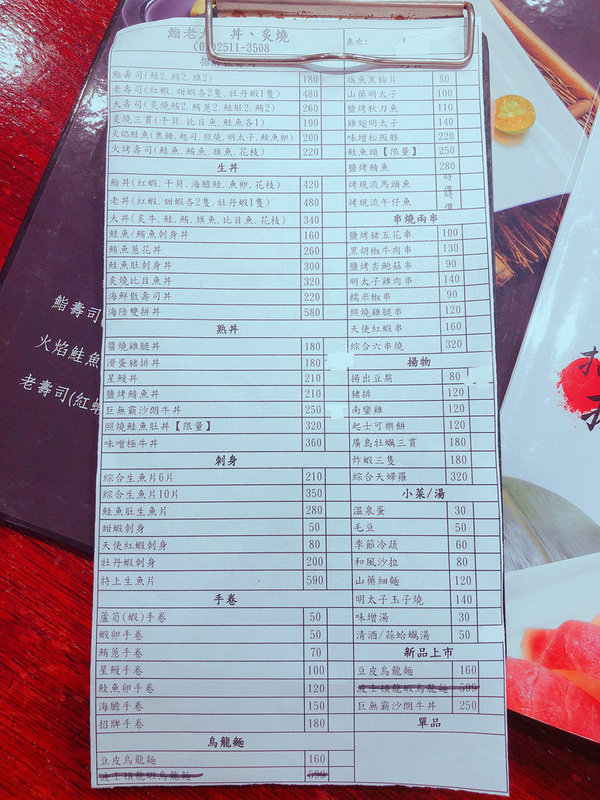 鮨老大 丼、炙燒
(02)2511-3508
桌次:
鮨壽司(鮭2,鮪2,旗2) 180
老壽司(紅蝦,甜蝦各2隻,牡丹蝦1隻) 480
大壽司(炙燒鮪2,鮪蔥2,鮭肚2,鮪2) 260
炙燒三貫(干貝,比目魚,鮭魚各1) 190
火焰鮭魚(焦糖,起司,照燒,明太子,鮭魚卵) 200
火烤壽司(鮭魚,鮪魚,旗魚,花枝) 220
生丼
鮨丼(紅蝦,干貝,海膽鮭,魚卵,花枝) 420
老丼(紅蝦,甜蝦各2隻,牡丹蝦1隻) 480
大丼(炙牛,鮭,鮪,旗魚,比目魚,花枝) 340
鮭魚/鮪魚刺身丼 160
鮪魚蔥花丼 260
鮭魚肚刺身丼 300
炙燒比目魚丼 320
海鮮散壽司丼 220
海陸雙拼丼 580
熟丼
醬燒雞腿丼 180
滑蛋豬排丼 180
星鰻丼 210
鹽烤鯖魚丼 210
巨無霸沙朗牛丼 250
照燒鮭魚肚丼【限量】 320
味增極牛丼 360
刺身
綜合生魚片6片 210
綜合生魚片10片 350
鮭魚肚生魚片 280
甜蝦刺身 50
天使紅蝦刺身 80
牡丹蝦刺身 200
特上生魚片 590
手卷
蘆筍(蝦)手卷 50
蝦卵手卷 50
鮪蔥手卷 70
星鰻手卷 100
鮭魚卵手卷 120
海膽手卷 150
招牌手卷 180
烏龍麵
豆皮烏龍麵 160
波士頓龍蝦烏龍麵 599
旗魚黑輪片 80
山藥明太子 100
鹽烤秋刀魚 110
雞翅明太子 140
味增松阪豚 220
鮭魚頭【限量】 250
鹽烤鯖魚 280
烤現流馬頭魚 時價
烤現流午仔魚 時價
串燒兩串
鹽烤豬五花串 100
黑胡椒牛肉串 130
鹽烤杏鮑菇串 90
明太子雞肉串 140
糯米椒串 90
照燒雞腿串 140
天使紅蝦串 160
綜合六串燒 320
揚物
揚出豆腐 80
豬排 120
南蠻雞 120
起士可樂餅 120
廣島牡蠣三貫 180
炸蝦三隻 180
綜合天婦羅 320
小菜/湯
溫泉蛋 30
毛豆 50
季節冷蔬 60
和風沙拉 80
山藥細麵 120
明太子玉子燒 140
味增湯 30
清酒/蒜蛤蠣湯 50
新品上市
豆皮烏龍麵 160
波士頓龍蝦烏龍麵 599
巨無霸沙朗牛丼 250
單品
鮨壽司(
火焰鮭魚
老壽司(紅蝦